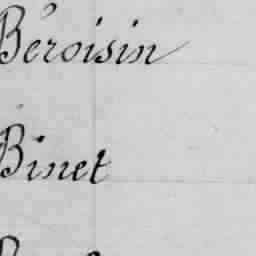 Béroisin
Binet